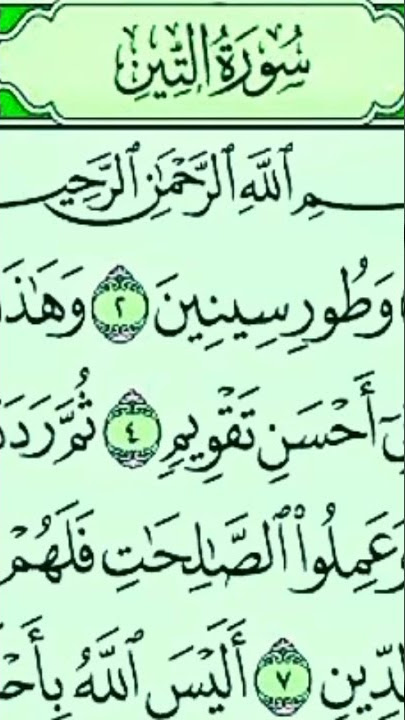 سُورَةُ التِّينِ
ـمِ ٱللَّهِ ٱلرَّحْمَٰنِ ٱلرَّحِيـ
وَطُورِ سِينِينَ ٢ وَهَٰذَا
أَحْسَنِ تَقْوِيمٍ ٤ ثُمَّ رَدَدْ
وَعَمِلُوا۟ ٱلصَّٰلِحَٰتِ فَلَهُمْ
لدِّينِ ٧ أَلَيْسَ ٱللَّهُ بِأَحْـ